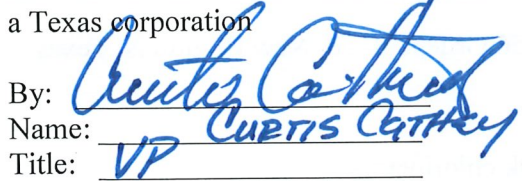 a Texas corporation
By: Curtis Cathey
Name: CURTIS CATHEY
Title: VP